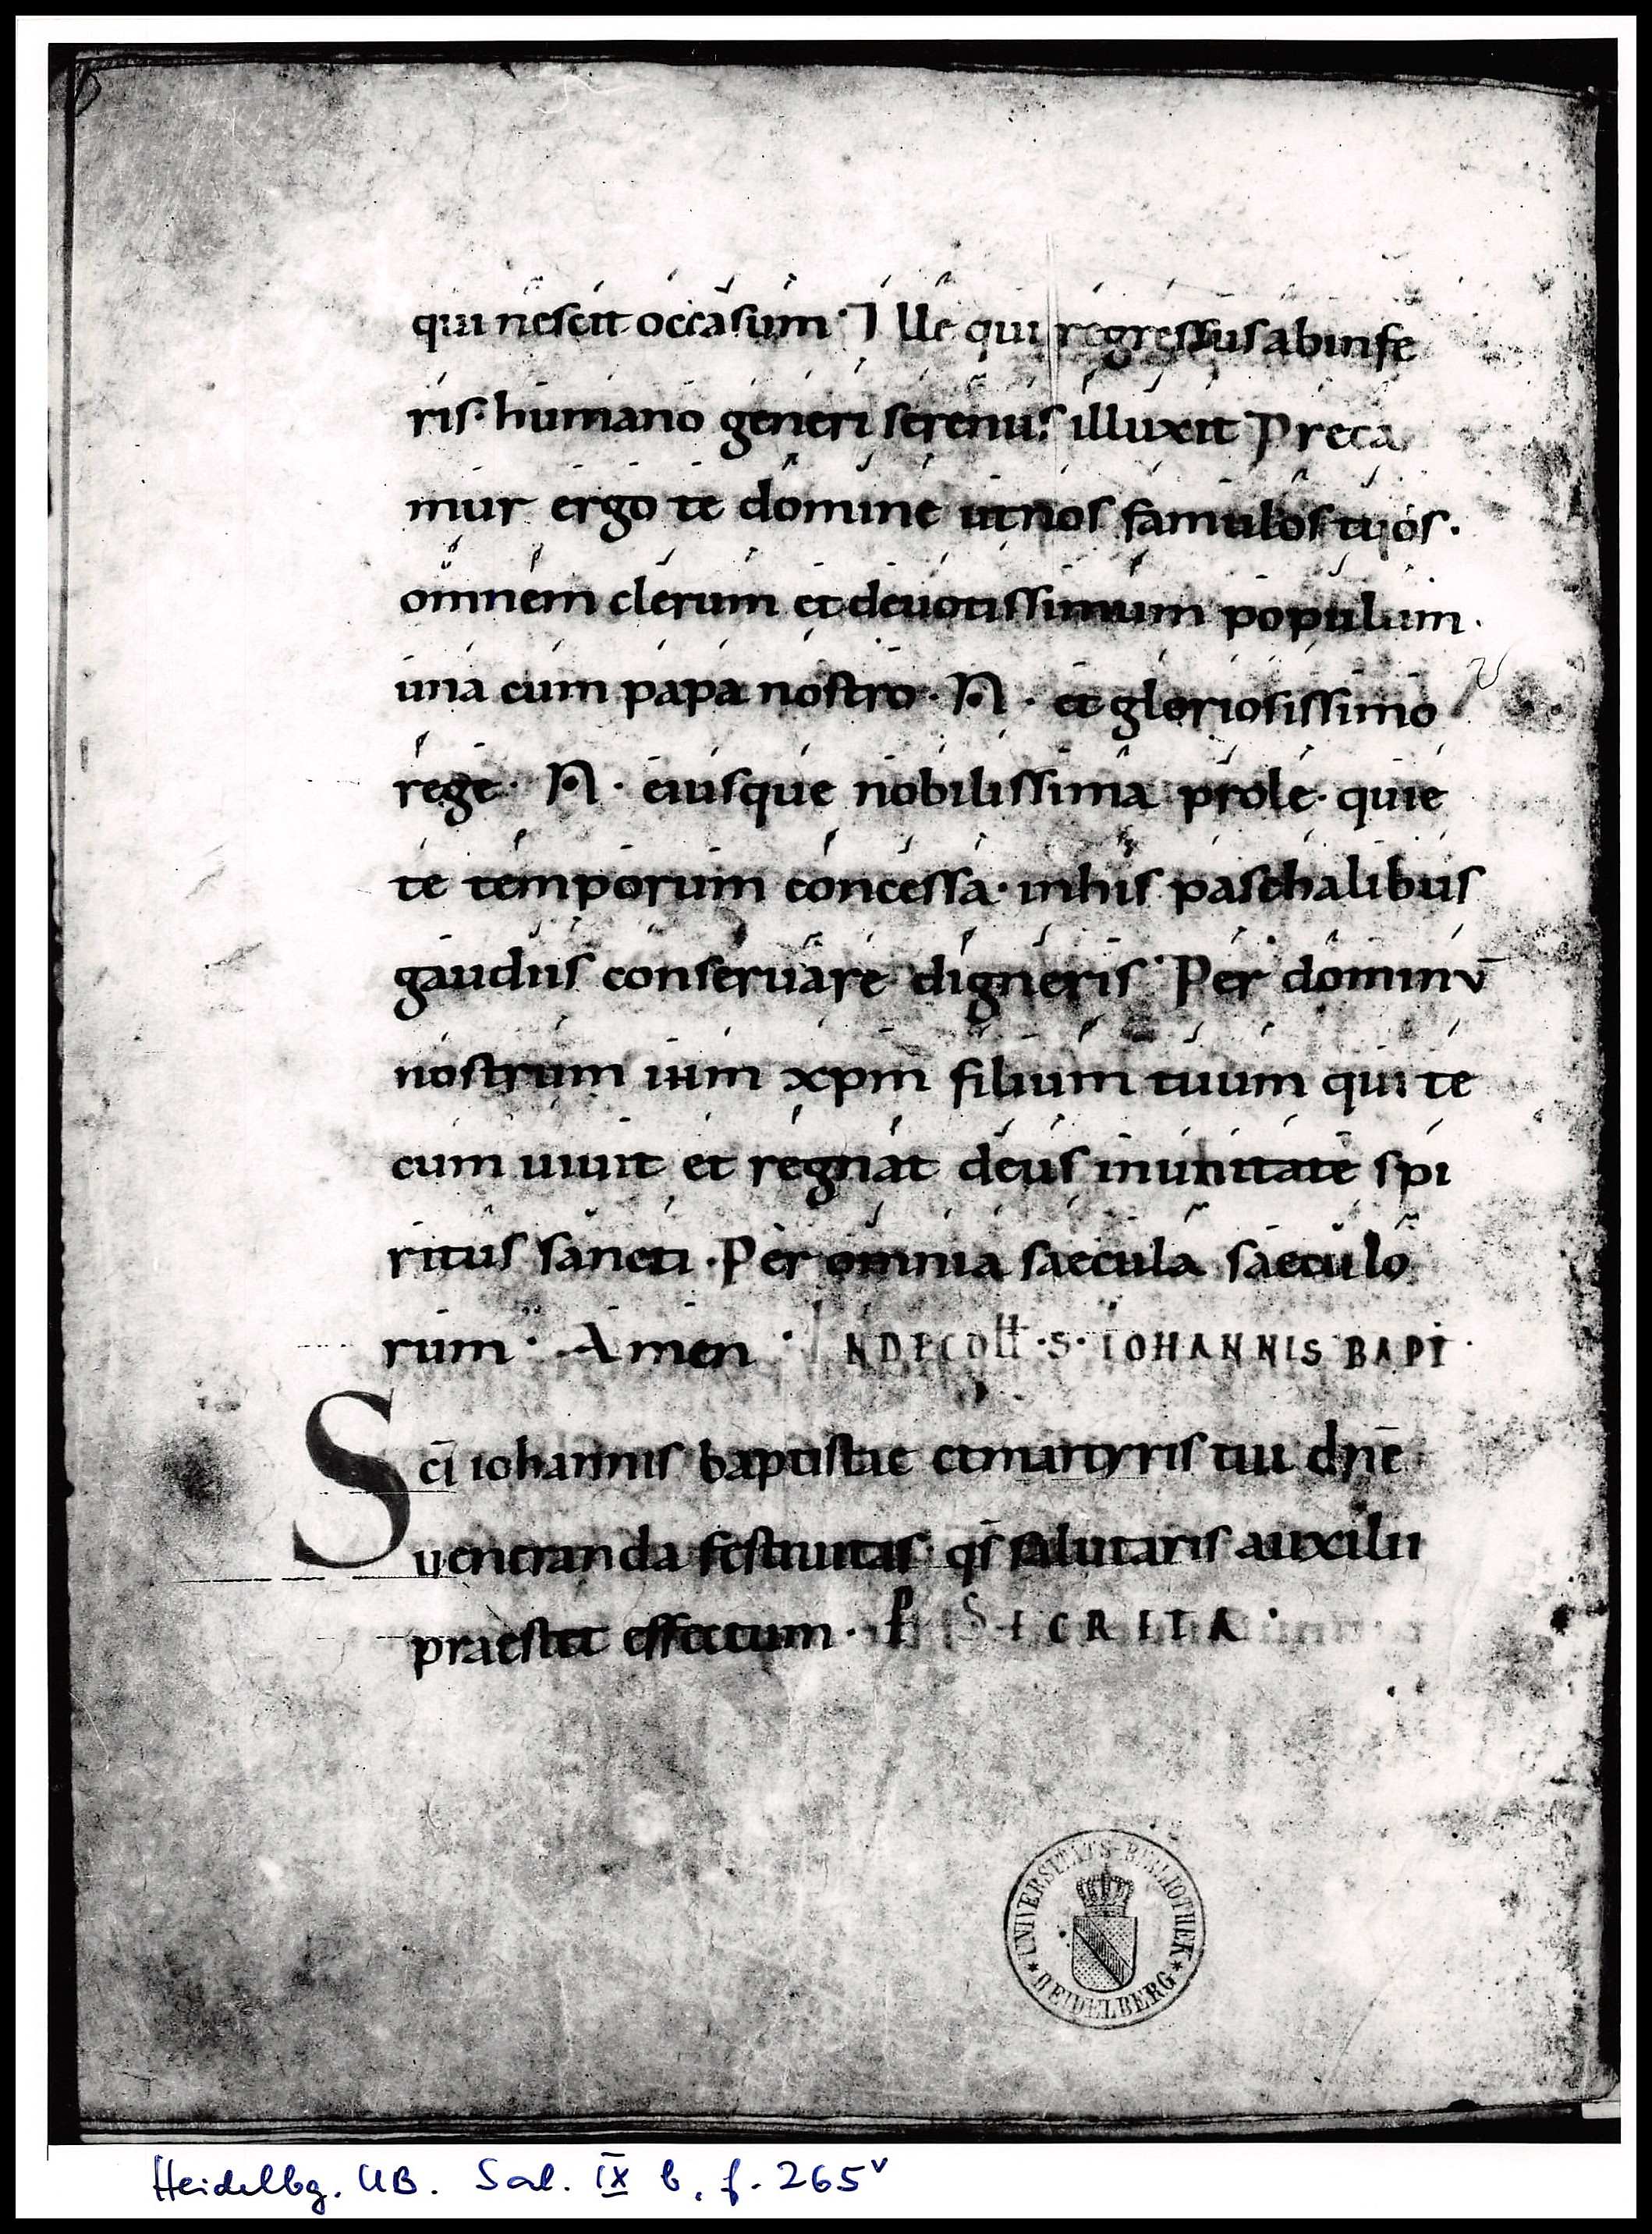 qui nescit occasum · Ille qui regressus ab infe
ris · humano generi serenus illuxit Preca
mur ergo te domine ut nos famulos tuos ·
omnem clerum et deuotissimum populum ·
una cum papa nostro · N · et gloriosissimo
rege · N · eiusque nobilissima prole · quie
te temporum concessa · in his paschalibus
gaudiis conseruare digneris · Per dominū
nostrum ihm xpm filium tuum qui te
cum uiuit et regnat deus in unitate spi
ritus sancti · Per omnia saecula saeculo
rum · Amen · IN DECOLL · S · IOHANNIS BAPT ·
Sci iohannis baptistae et martyris tui dne
ueneranda festiuitas · qs salutaris auxilii
praestet effectum · P SECRETA ·
UNIVERSITÄTS-BIBLIOTHEK * HEIDELBERG *
Heidelbg. UB. Sal. IX b, f. 265v